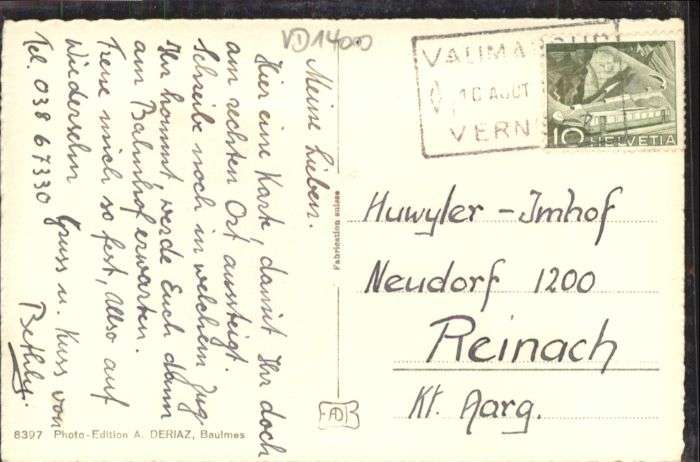 VD 14000
Meine Lieben.
Hier eine Karte, damit Ihr doch
am rechten Ort aussteigt.
Schreibe noch in welchem Zug
Ihr kommt, werde Euch dann
am Bahnhof erwarten.
Freue mich so fest, Also auf
Wiedersehn Gruss u. Kuss von
Tel. 038 67330 Bethly.
8397 Photo-Edition A. DERIAZ, Baulmes
Fabrication suisse
10 AOUT
VERN
10 HELVETIA
Huwyler-Imhof
Neudorf 1200
Reinach
Kt. Aarg.